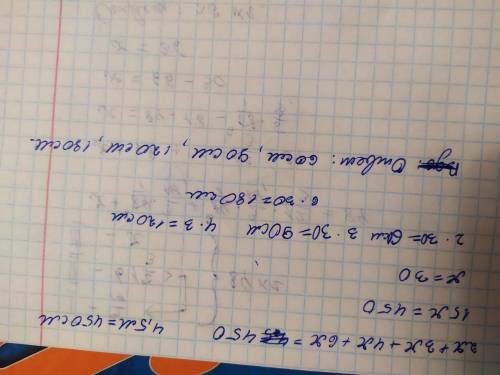 4,5м = 450см
2x + 3x + 4x + 6x = 450
15x = 450
x = 30
2 · 30 = 60см 3 · 30 = 90см 4 · 3 = 120см
6 · 30 = 180см
Ответ: 60см, 90см, 120см, 180см.